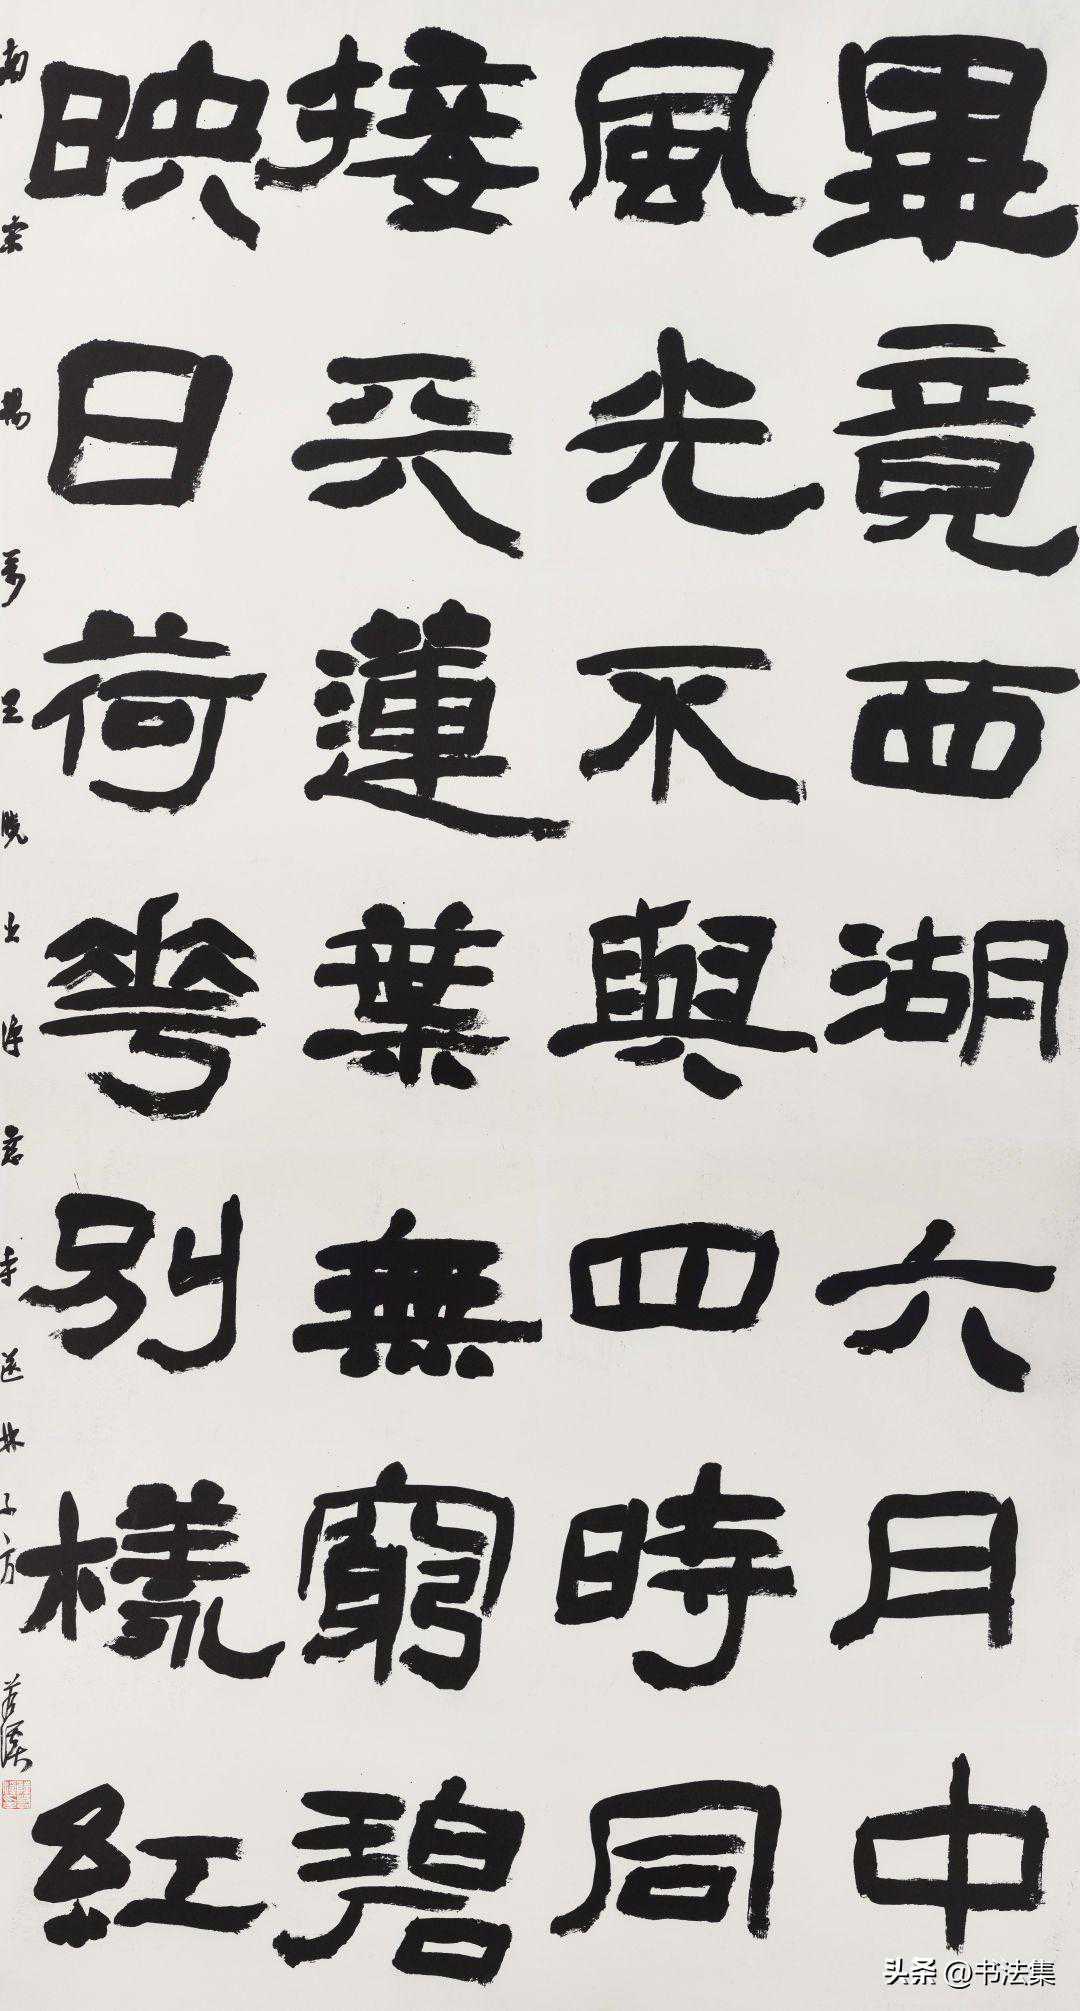 畢竟西湖六月中
風光不與四時同
接天蓮葉無窮碧
映日荷花別樣紅
南宋楊萬里曉出淨慈寺送林子方
头条 @书法集